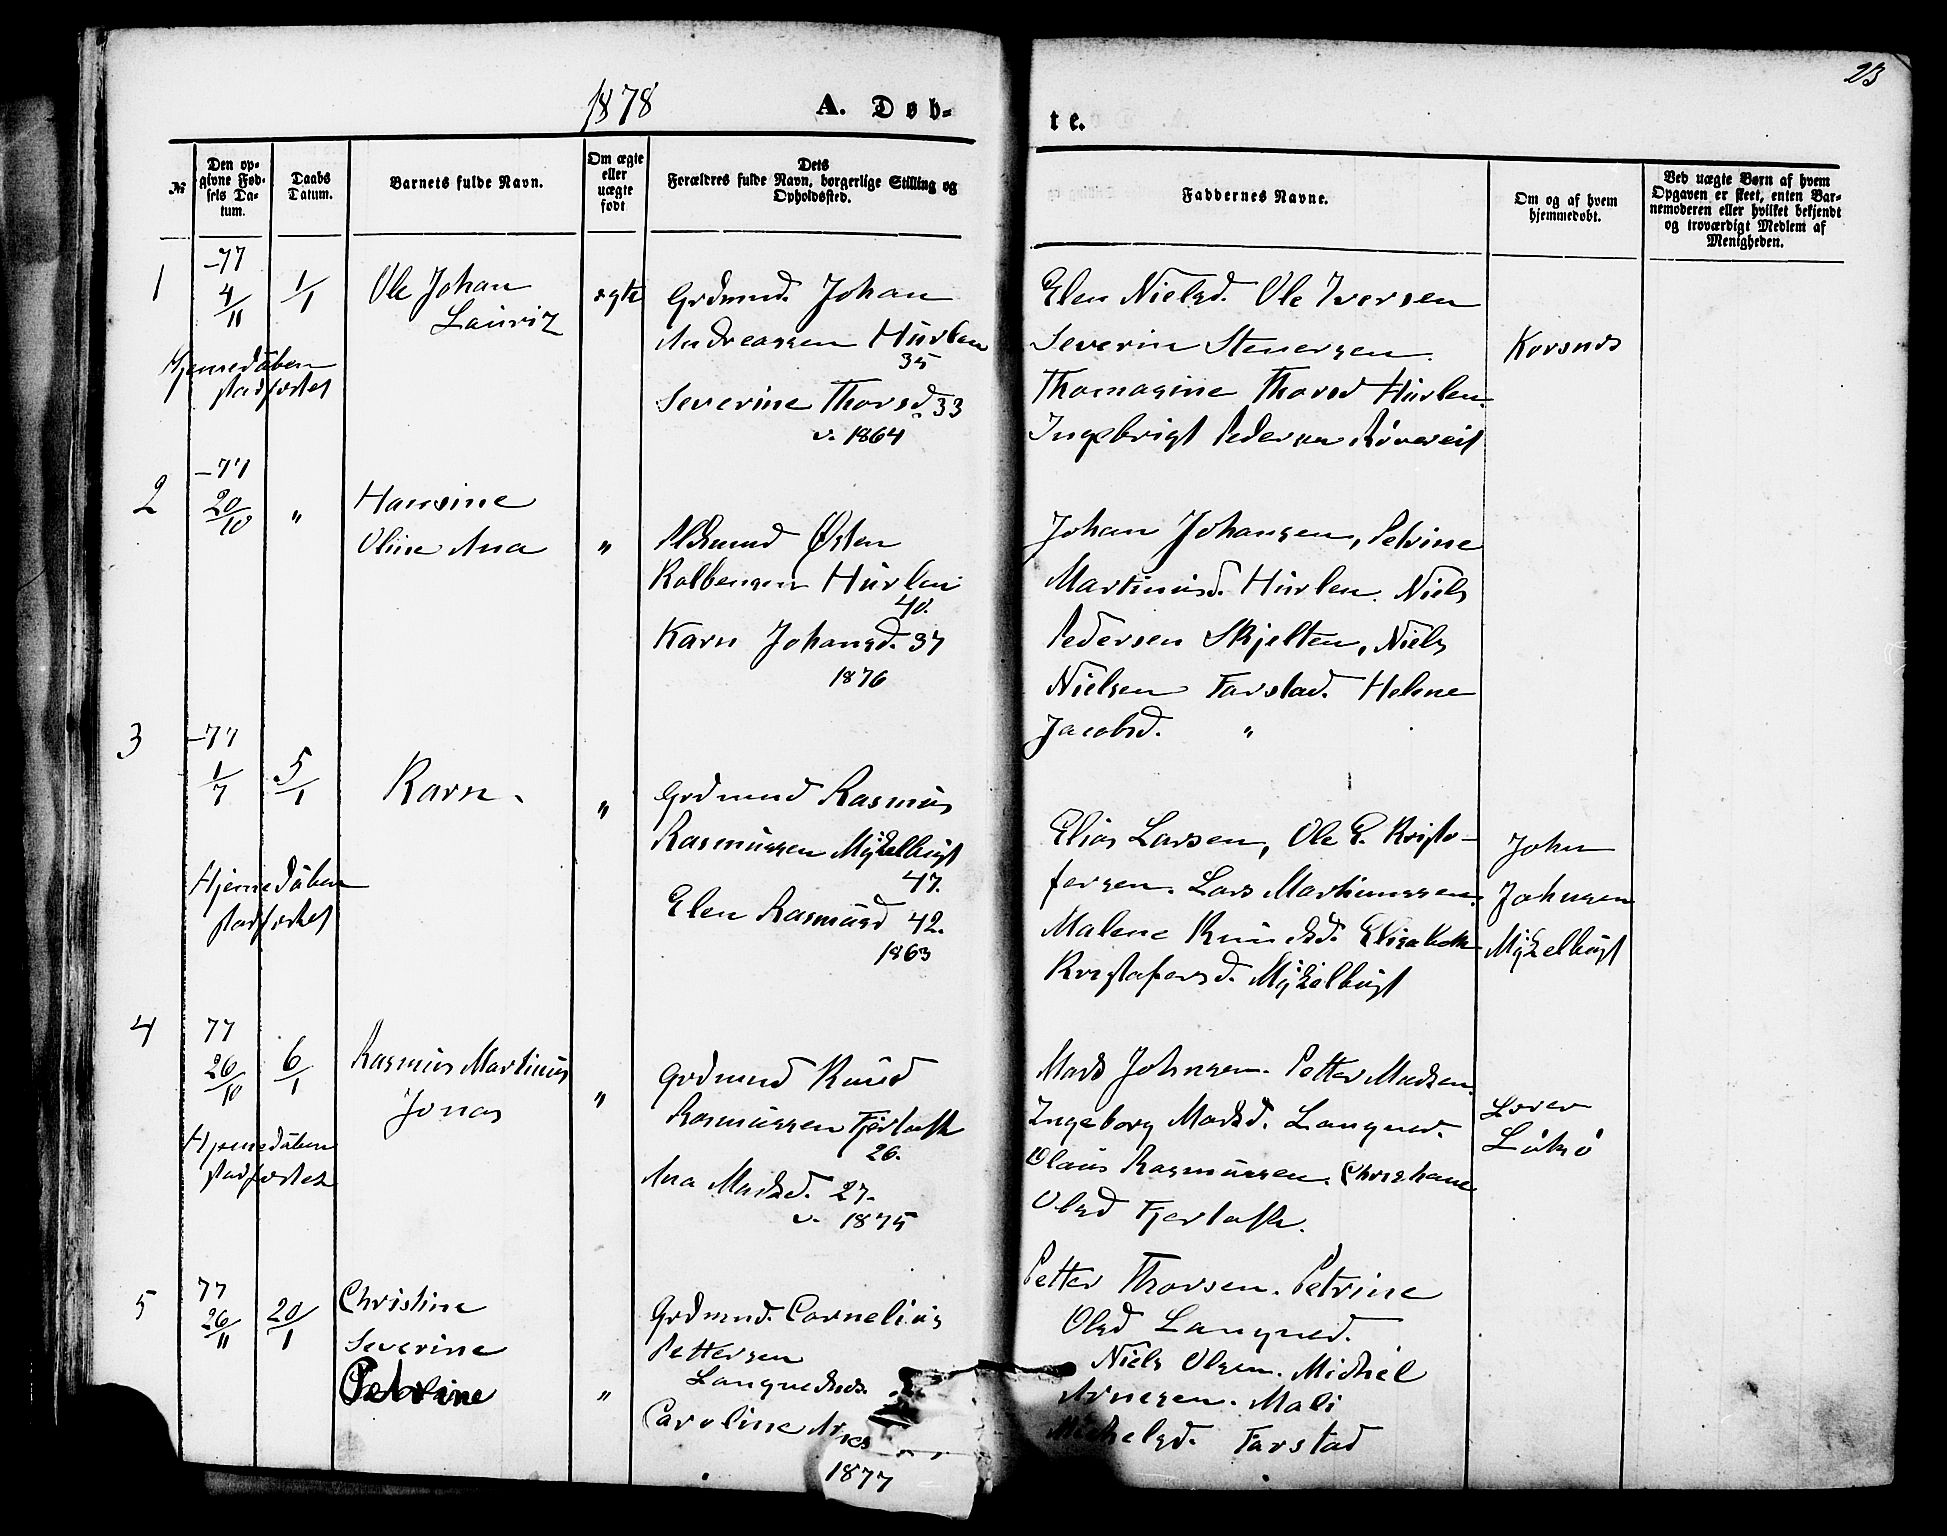 23
1878
A. Døb-
te.
№
Den op-
givne Fød-
sels Da-
tum.
Daabs
Datum.
Barnets fulde Navn.
Om ægte
eller
uægte
født
Dets
Forældres fulde Navn, borgerlige Stilling og
Opholdssted.
Faddernes Navne.
Om og af hvem
hjemmedøbt.
Ved uægte Børn af hvem
Opgaven er skeet, enten Bar-
nemoderen eller hvilket bekjendt
og troværdigt Medlem af
Menigheden.
1
-77
4/11
1/1
Ole Johan
Lauritz
ægte
Grdmnd. Johan
Andreassen Hurlen
35
Severine Thorsd. 33
v. 1864
Hjemmedåben
stadfæstet
Elen Nielsd. Ole Iversen
Severin Stenersen
Thomasine Thorsd Hurlen
Ingebrigt Pedersen
Korsnes
2
-77
20/10
"
Hansine
Oline Ana
"
Østen
Kolbensen Hurlen
40.
Karn Johansd. 37
1876
Johan Johansen, Petrine
Martinusd. Hurlen. Niels
Pedersen Skjelten, Niels
Nielsen Farstad. Helene
Jacobsd. "
3
-77
1/7
5/1
Karn.
"
Grdmnd Rasmus
Rasmussen Myklebust
47.
Elen Rasmusd 42.
1863
Hjemmedåben
stadfæstet
Elias Larsen, Ole E. Kristo-
fersen. Lars Martinussen.
Malene Knudsd. Elisabeth
Kristofersd. Myklebust
John
Johnsen
Myklebust
4
77
26/10
6/1
Rasmus Martinus
Jonas
"
Grdmnd Knud
Rasmussen Fjærtoft
26.
Ana Madsd. 27.
v. 1875
Hjemmedåben
stadfæstet
Mads Johnsen. Petter Madsen
Ingeborg Madsd. Longved.
Olaus Rasmussen. Christiane
Olsd Fjærtoft.
Lærer
Løksø
5
77
26/11
20/1
Christine
Severine
Petrine
"
Grdmnd. Cornelius
Pettersen
Caroline
1877
Petter Thorsen. Petrine
Olsd Longved.
Niels Olsen. Michel
Arnesen. Mali
Michelsd. Farstad